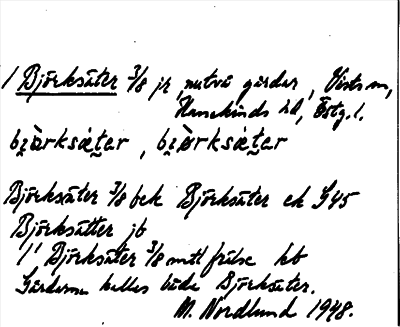 1 Björksäter 3/8 jr, nutvå gårdar, Vists sn,
Hanekinds hd, Östg. l.
bi̯ò̀rksǽtər, bi̯ø̀rksǽtər
Björksäter 3/8 fck Björksäter ek G45
Björksätter jb
1' Björksäter 3/8 mtl frälse hb
Gårdarna kallas båda Björksäter.
M. Nordlund 1948.